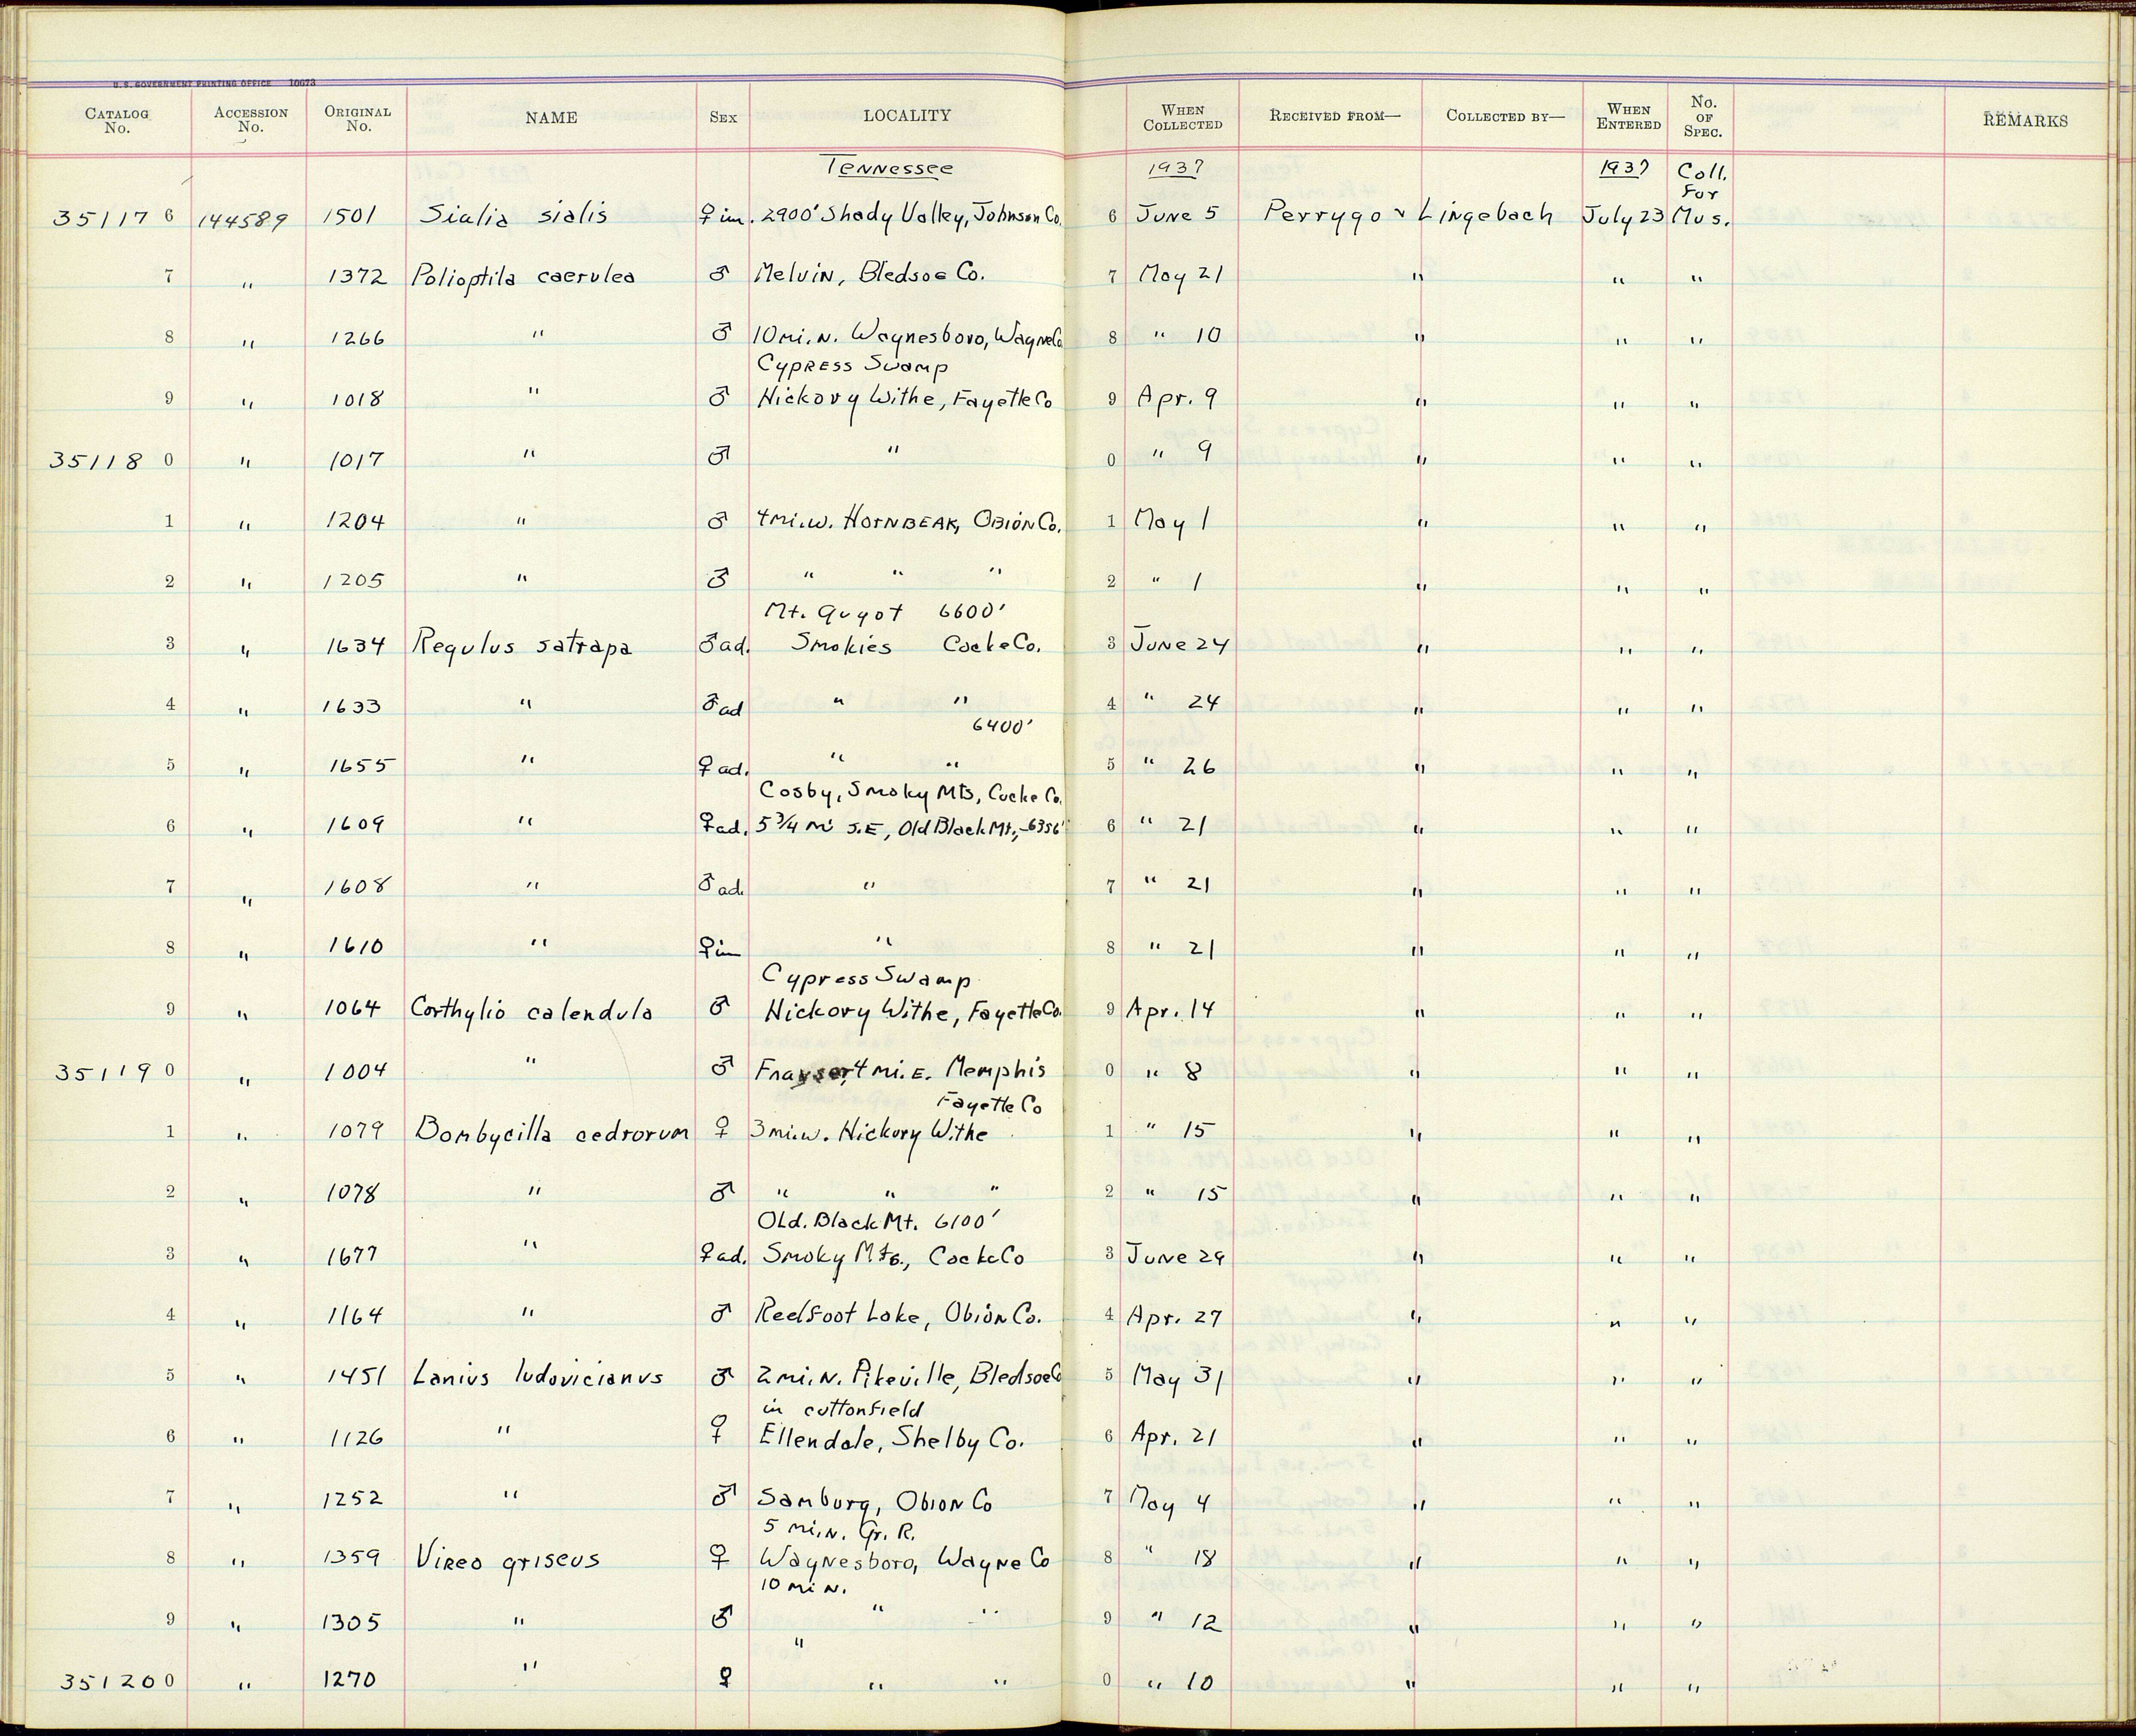 U.S. GOVERNMENT PRINTING OFFICE 10673
CATALOG No. ACCESSION No. ORIGINAL No. NAME SEX LOCALITY WHEN COLLECTED RECEIVED FROM— COLLECTED BY— WHEN ENTERED No. OF SPEC. REMARKS
Tennessee 1937 1937 Coll. For
351176 144589 1501 Sialia sialis ♀ im. 2900' Shady Valley, Johnson Co. 6 June 5 Perrygo & Lingebach July 23 Mus.
7 " 1372 Polioptila caerulea ♂ Melvin, Bledsoe Co. 7 May 21 " " "
8 " 1266 " ♂ 10 mi. N. Waynesboro, Wayne Co 8 " 10 " " "
Cypress Swamp
9 " 1018 " ♂ Hickory Withe, Fayette Co 9 Apr. 9 " " "
351180 " 1017 " ♂ " 0 " 9 " " "
1 " 1204 " ♂ 4 mi. W. Hornbeak, Obion Co. 1 May 1 " " "
2 " 1205 " ♂ " " " 2 " 1 " " "
Mt. Guyot 6600'
3 " 1634 Regulus satrapa ♂ ad. Smokies Cocke Co. 3 June 24 " " "
4 " 1633 " ♂ ad " " 4 " 24 " " "
6400'
5 " 1655 " ♀ ad. " " 5 " 26 " " "
Cosby, Smoky Mts, Cocke Co.
6 " 1609 " ♀ ad. 5 3/4 mi S.E, Old Black Mt,-6356' 6 " 21 " " "
7 " 1608 " ♂ ad. " 7 " 21 " " "
8 " 1610 " ♀ im " 8 " 21 " " "
Cypress Swamp
9 " 1064 Corthylio calendula ♂ Hickory Withe, Fayette Co. 9 Apr. 14 " " "
351190 " 1004 " ♂ Frayser, 4 mi. E. Memphis 0 " 8 " " "
Fayette Co
1 " 1079 Bombycilla cedrorum ♀ 3 mi. W. Hickory Withe 1 " 15 " " "
2 " 1078 " ♂ " " " 2 " 15 " " "
Old. Black Mt. 6100'
3 " 1677 " ♀ ad. Smoky Mts., Cocke Co 3 June 29 " " "
4 " 1164 " ♂ Reelfoot Lake, Obion Co. 4 Apr. 27 " " "
5 " 1451 Lanius ludovicianus ♂ 2 mi. N. Pikeville, Bledsoe Co 5 May 31 " " "
in cottonfield
6 " 1126 " ♀ Ellendale, Shelby Co. 6 Apr. 21 " " "
7 " 1252 " ♂ Samburg, Obion Co 7 May 4 " " "
5 mi. N. Gr. R.
8 " 1359 Vireo griseus ♀ Waynesboro, Wayne Co 8 " 18 " " "
10 mi N.
9 " 1305 " ♂ " " 9 " 12 " " "
"
351200 " 1270 " ♀ " " 0 " 10 " " "